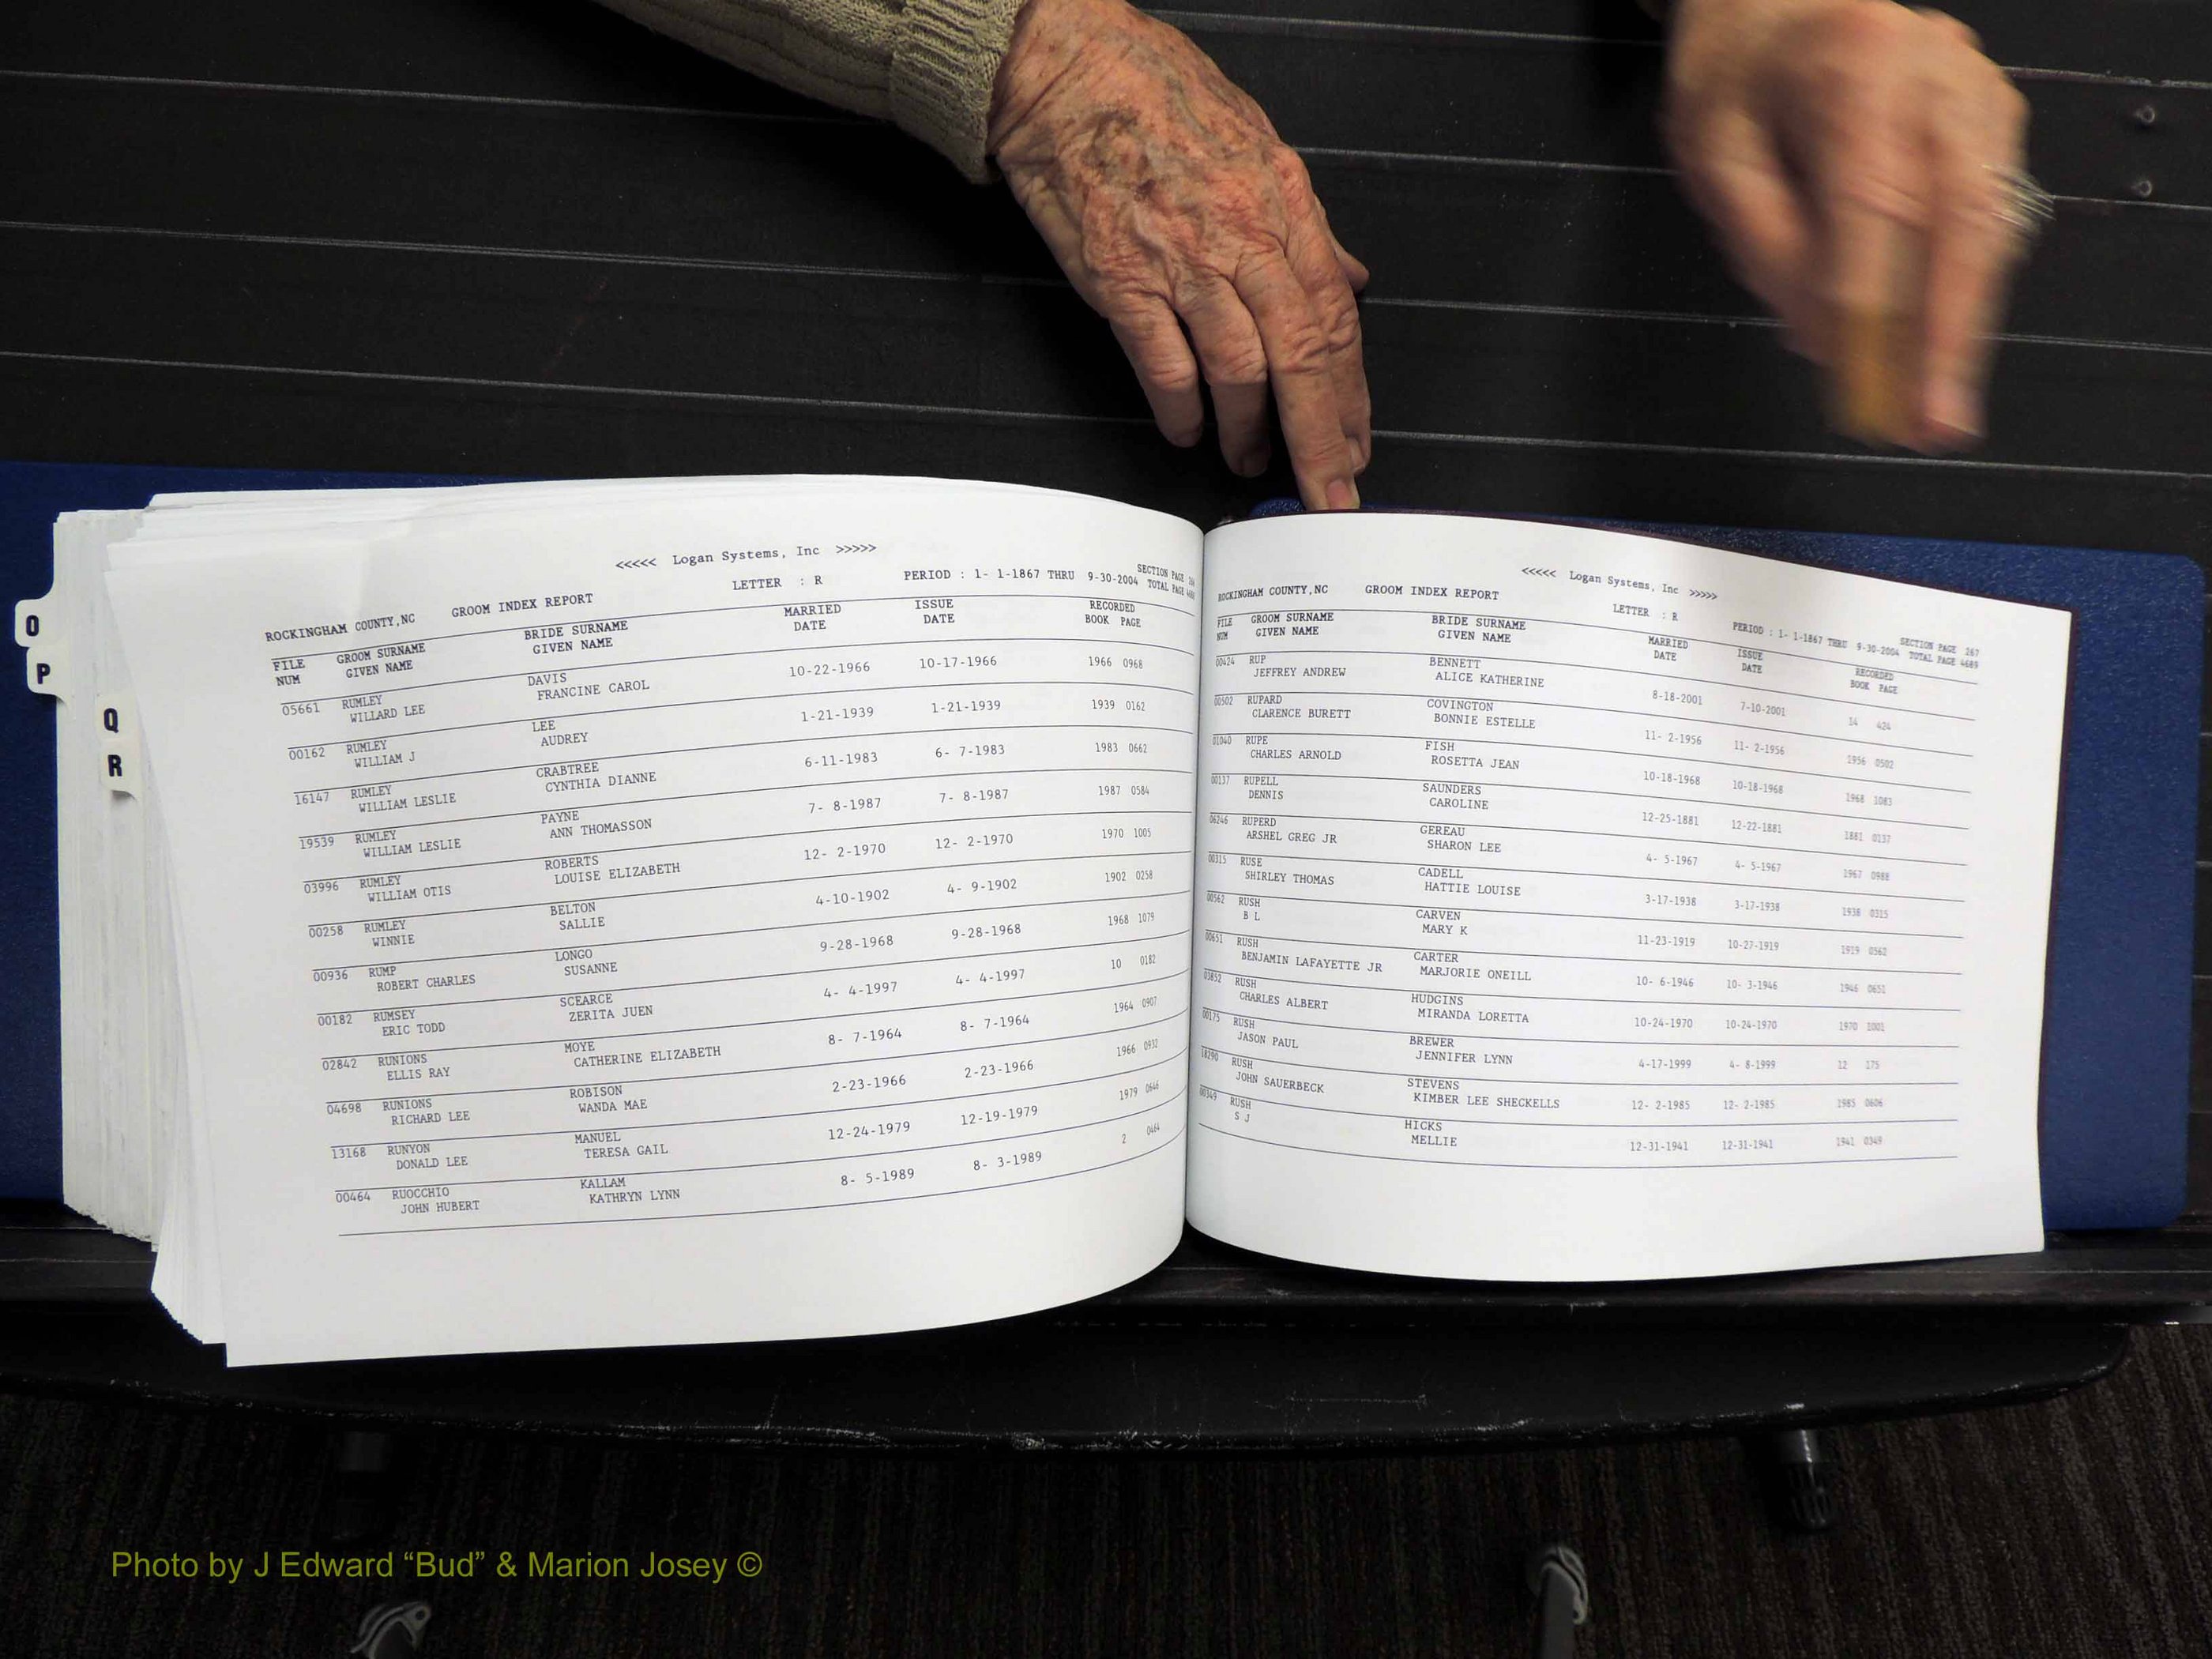 O
P
Q
R
<<<<< Logan Systems, Inc >>>>>
ROCKINGHAM COUNTY,NC GROOM INDEX REPORT LETTER : R PERIOD : 1- 1-1867 THRU 9-30-2004 SECTION PAGE
TOTAL PAGE
FILE GROOM SURNAME BRIDE SURNAME MARRIED ISSUE RECORDED
NUM GIVEN NAME GIVEN NAME DATE DATE BOOK PAGE
05661 RUMLEY DAVIS 10-22-1966 10-17-1966 1966 0968
WILLARD LEE FRANCINE CAROL
00162 RUMLEY LEE 1-21-1939 1-21-1939 1939 0162
WILLIAM J AUDREY
16147 RUMLEY CRABTREE 6-11-1983 6- 7-1983 1983 0662
WILLIAM LESLIE CYNTHIA DIANNE
19539 RUMLEY PAYNE 7- 8-1987 7- 8-1987 1987 0584
WILLIAM LESLIE ANN THOMASSON
03996 RUMLEY ROBERTS 12- 2-1970 12- 2-1970 1970 1005
WILLIAM OTIS LOUISE ELIZABETH
00258 RUMLEY BELTON 4-10-1902 4- 9-1902 1902 0258
WINNIE SALLIE
00936 RUMP LONGO 9-28-1968 9-28-1968 1968 1079
ROBERT CHARLES SUSANNE
00182 RUMSEY SCEARCE 4- 4-1997 4- 4-1997 10 0182
ERIC TODD ZERITA JUEN
02842 RUNIONS MOYE 8- 7-1964 8- 7-1964 1964 0907
ELLIS RAY CATHERINE ELIZABETH
04698 RUNIONS ROBISON 2-23-1966 2-23-1966 1966 0932
RICHARD LEE WANDA MAE
13168 RUNYON MANUEL 12-24-1979 12-19-1979 1979 0646
DONALD LEE TERESA GAIL
00464 RUOCCHIO KALLAM 8- 5-1989 8- 3-1989 2 0464
JOHN HUBERT KATHRYN LYNN
<<<<< Logan Systems, Inc >>>>>
ROCKINGHAM COUNTY,NC GROOM INDEX REPORT LETTER : R PERIOD : 1- 1-1867 THRU 9-30-2004 SECTION PAGE 267
TOTAL PAGE 4689
FILE GROOM SURNAME BRIDE SURNAME MARRIED ISSUE RECORDED
NUM GIVEN NAME GIVEN NAME DATE DATE BOOK PAGE
00424 RUP BENNETT 8-18-2001 7-10-2001 14 424
JEFFREY ANDREW ALICE KATHERINE
00502 RUPARD COVINGTON 11- 2-1956 11- 2-1956 1956 0502
CLARENCE BURETT BONNIE ESTELLE
01040 RUPE FISH 10-18-1968 10-18-1968 1968 1083
CHARLES ARNOLD ROSETTA JEAN
00137 RUPELL SAUNDERS 12-25-1881 12-22-1881 1881 0137
DENNIS CAROLINE
06246 RUPERD GEREAU 4- 5-1967 4- 5-1967 1967 0988
ARSHEL GREG JR SHARON LEE
00315 RUSE CADELL 3-17-1938 3-17-1938 1938 0315
SHIRLEY THOMAS HATTIE LOUISE
00562 RUSH CARVEN 11-23-1919 10-27-1919 1919 0562
B L MARY K
00651 RUSH CARTER 10- 6-1946 10- 3-1946 1946 0651
BENJAMIN LAFAYETTE JR MARJORIE ONEILL
03852 RUSH HUDGINS 10-24-1970 10-24-1970 1970 1001
CHARLES ALBERT MIRANDA LORETTA
00175 RUSH BREWER 4-17-1999 4- 8-1999 12 175
JASON PAUL JENNIFER LYNN
18290 RUSH STEVENS 12- 2-1985 12- 2-1985 1985 0606
JOHN SAUERBECK KIMBER LEE SHECKELLS
00349 RUSH HICKS 12-31-1941 12-31-1941 1941 0349
S J MELLIE
Photo by J Edward “Bud” & Marion Josey ©